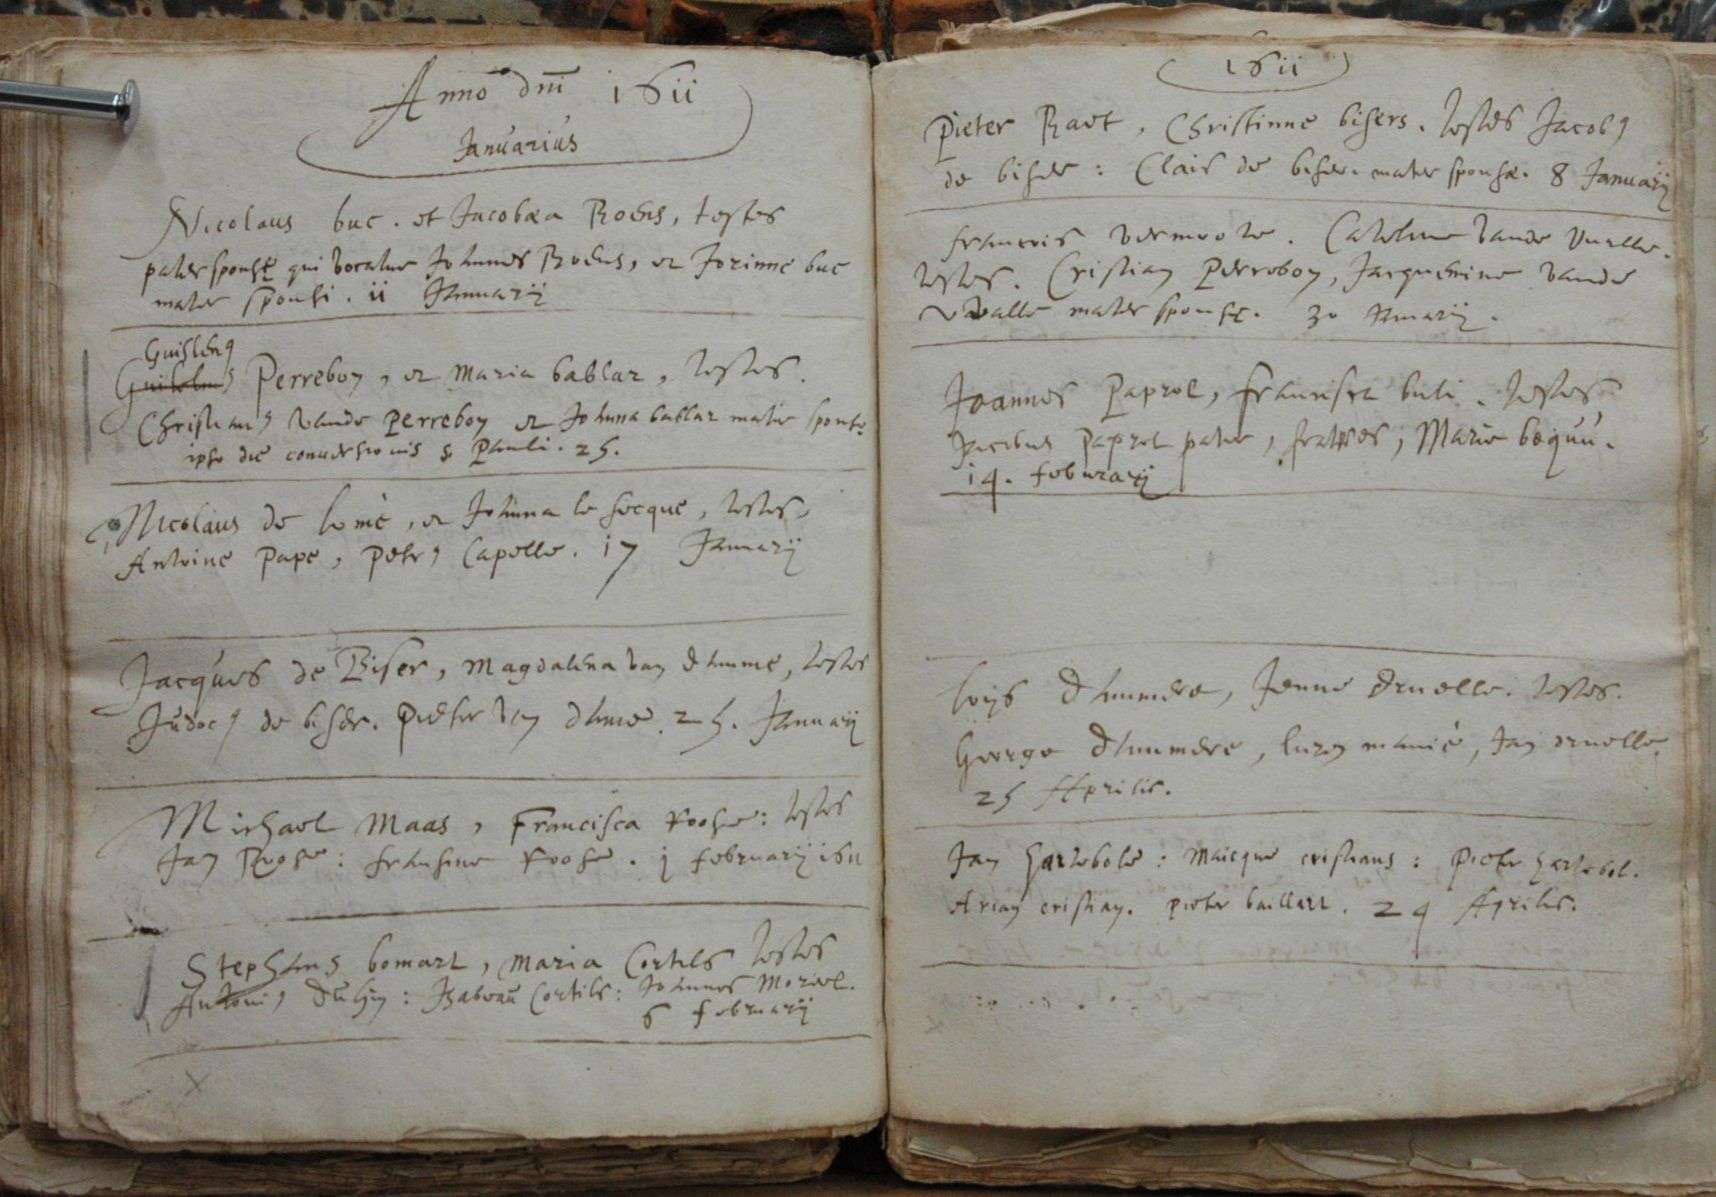 Anno dni 1611
Januarius
Nicolaus buc . et Jacobæa Roens, testes
pater sponsę qui vocatur Johannes Roens, et Jozinne buc
mater sponsi . 11 Januarij
Guislen9
Guilelm9 Perreboy, et Maria bablar, testes.
Christian9 vande Perreboy et Johanna bablar mater sponsę
ipso die conversionis s Pauli . 25.
Nicolaus de lomé, et Johanna le secque, testes
Antoine Pape, Petr9 Capelle. 17 Januarij
Jacques de Biser, Magdalena van dhame, testes
Judoc9 de biser. Pieter van dhame. 25. Januarij
Michael Maas, Francisca roose: testes
Jan Roose: fransine roose . j februarij 1611
Stephans bomart, Maria Cortils testes
Antoni9 : Isabeau Cortils: Johannes Moreel.
6 februarij
1611
Pieter Raet, Christinne bisers. testes Jacob9
de biser : Clais de biser. mater sponsæ. 8 Januarij
francois vermote. Cateline vande Walle.
testes. Cristian Perreboy, Jacquemine vande
Walle mater sponsę. 30 Januarij.
Joannes Paprol, francisca . testes
Jacobus Paprol pater, fratres, Marie bequu.
14. februarij
loijs dhumere, Jenne druelle. testes.
George dhumere, manié, Jan druelle,
25 Aprilis.
Jan hartebole : Maicque cristians : Pieter hartebol.
Arian cristian. Pieter baillart. 24 Aprilis.